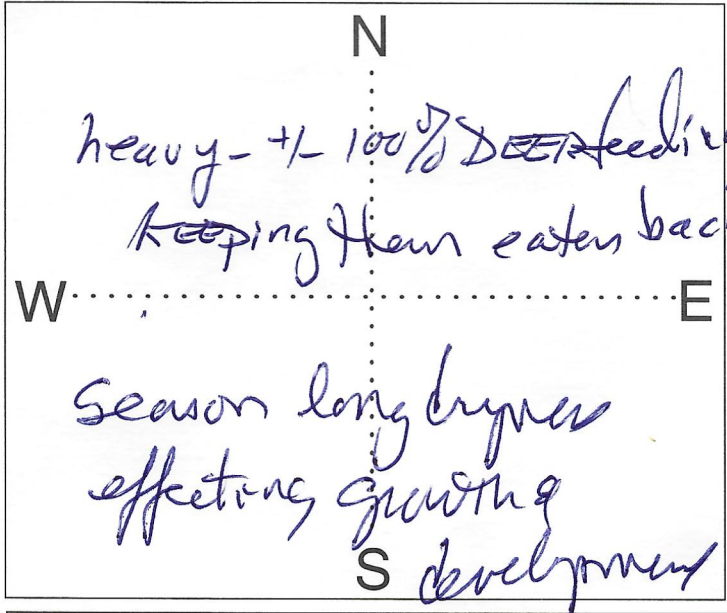 N
heavy - +/- 100% DEER feedin
KEEPing them eaten bac
W E
Season long dryness
effecting growth &
S development